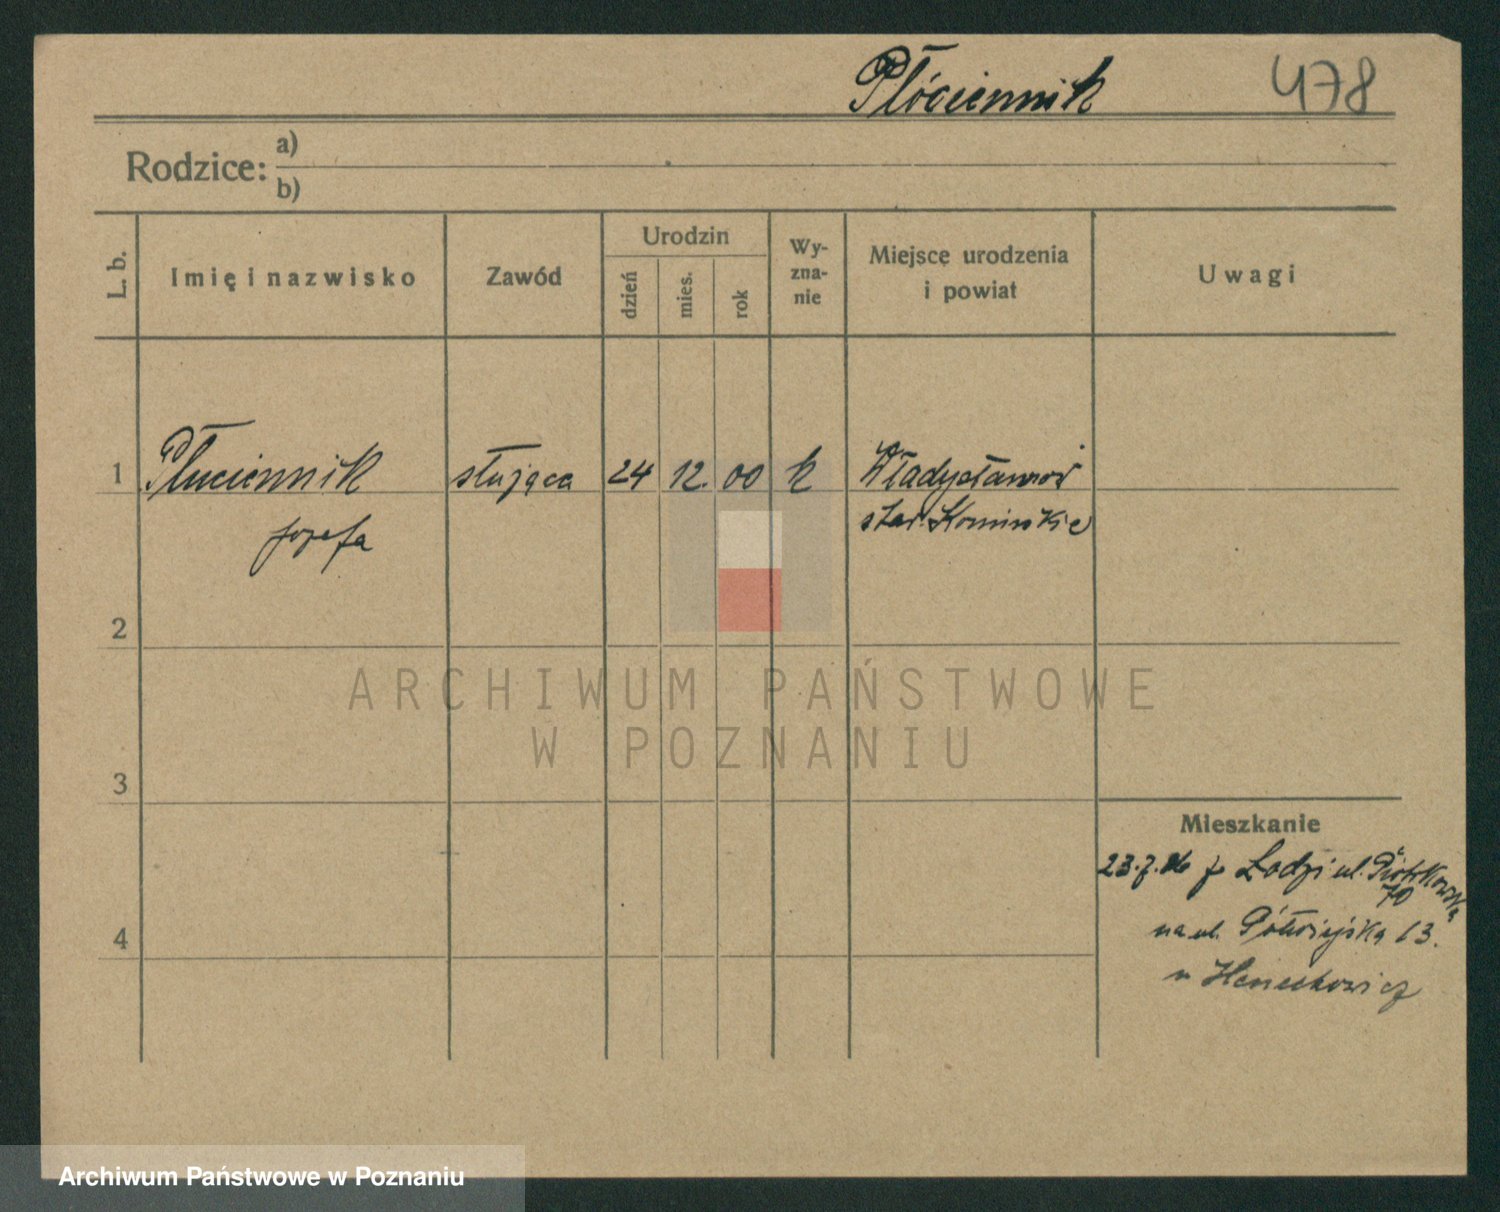 Płóciennik 478
Rodzice: a)
b)
L. b.
Imię i nazwisko
Zawód
Urodzin
dzień
mies.
rok
Wy-
zna-
nie
Miejsce urodzenia
i powiat
Uwagi
1 Płuciennik służąca 24 12. 00 k Władysławów
Józefa star. Konińskie
2
ARCHIWUM PAŃSTWOWE
W POZNANIU
3
Mieszkanie
23.7.26 z Lodzi ul. Piotrkowska
70
4
na ul. Półwiejska 13.
Archiwum Państwowe w Poznaniu